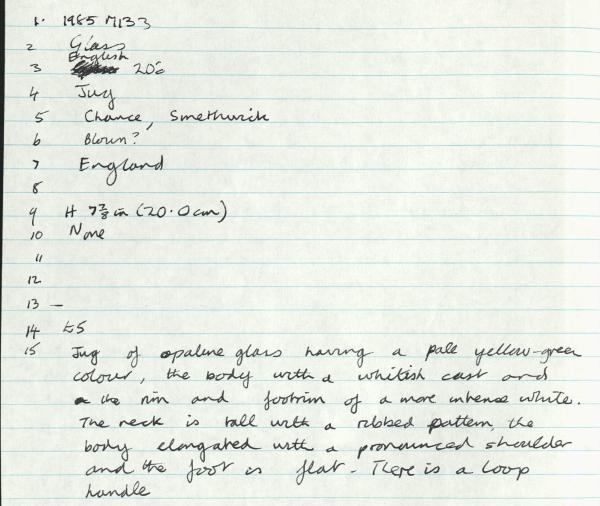 1. 1985 M133
2 Glass
English
3 20c
4 Jug
5 Chance, Smethwick
6 Blown?
7 England
8
9 H 7⅞ in (20.0cm)
10 None
11
12
13 —
14 £5
15 Jug of opaline glass having a pale yellow-green
colour, the body with a whitish cast and
the rim and footrim of a more intense white.
The neck is tall with a ribbed pattern, the
body elongated with a pronounced shoulder
and the foot is flat. There is a loop
handle